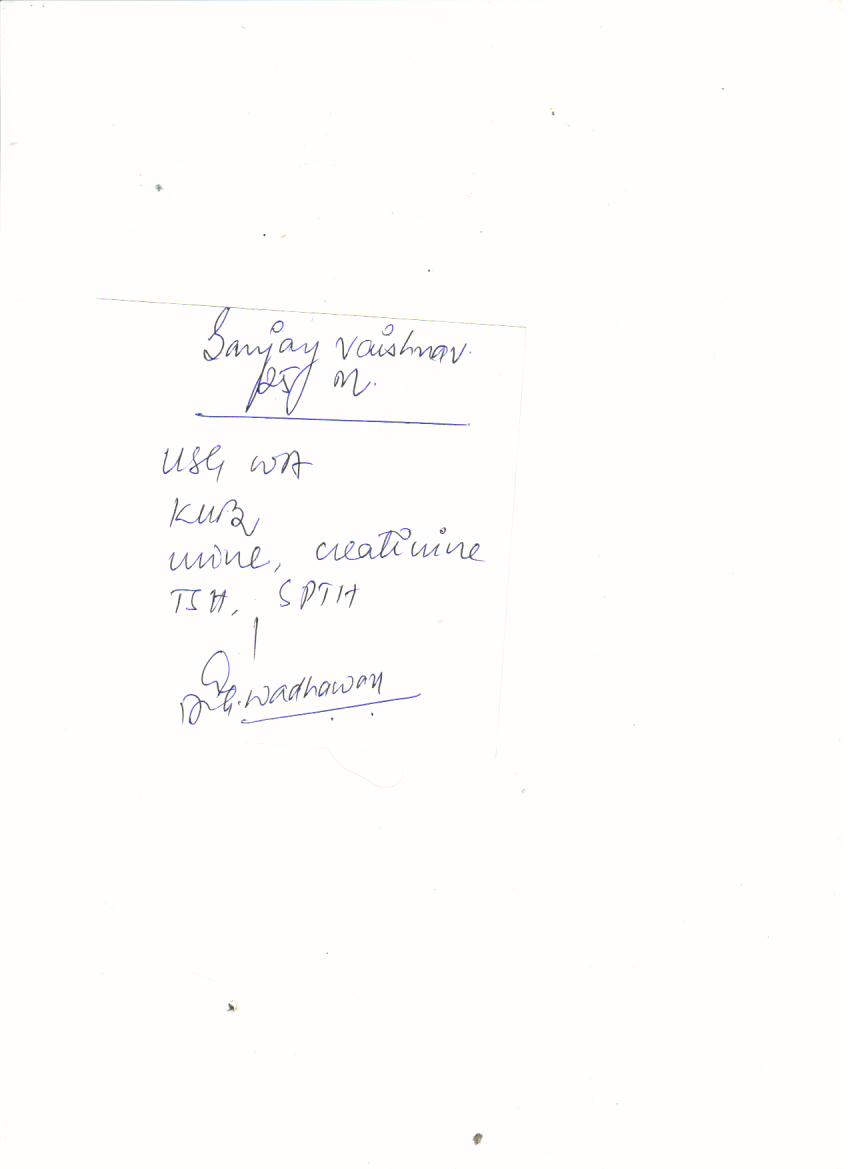 Sanjay Vaishnav.
25/ M.
USG WA
KUB
urine, creatinine
TSH, SPTH
Dr G. Wadhawan